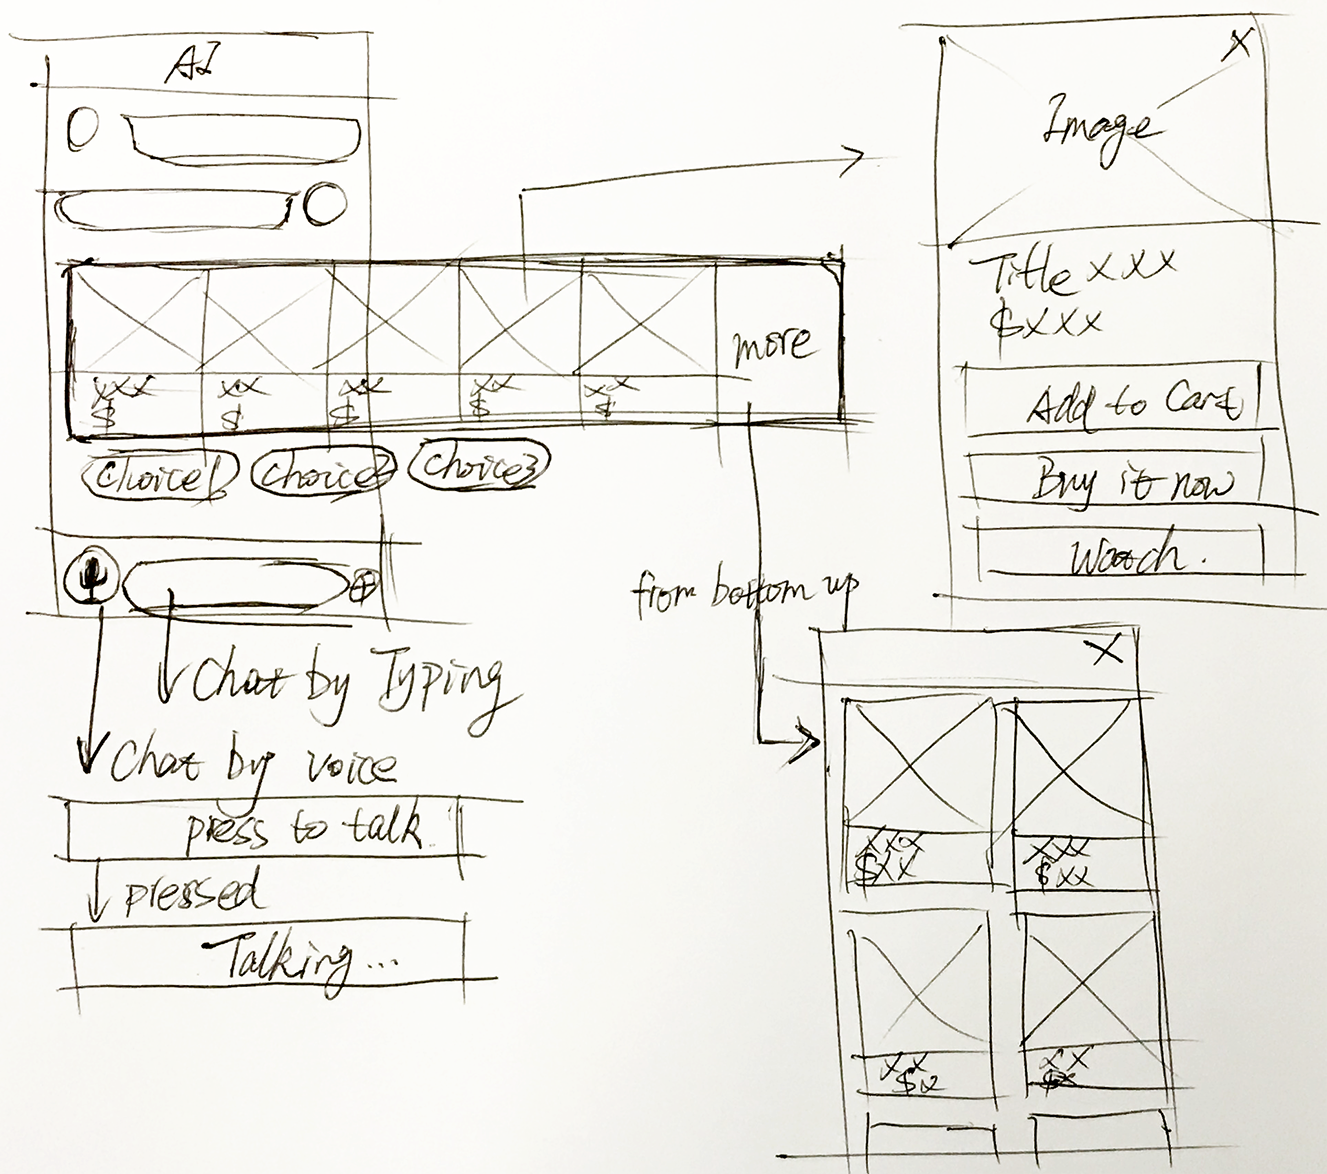 AI
xxx
$
xx
$
xx
$
xx
$
xx
$
more
choice1
choice2
choice3
Chat by Typing
Chat by voice
press to talk
pressed
Talking...
X
Image
Title XXX
$XXX
Add to Cart
Buy it now
Watch.
from bottom up
X
XXX
$XX
XXX
$XX
XX
$x
XX
$x